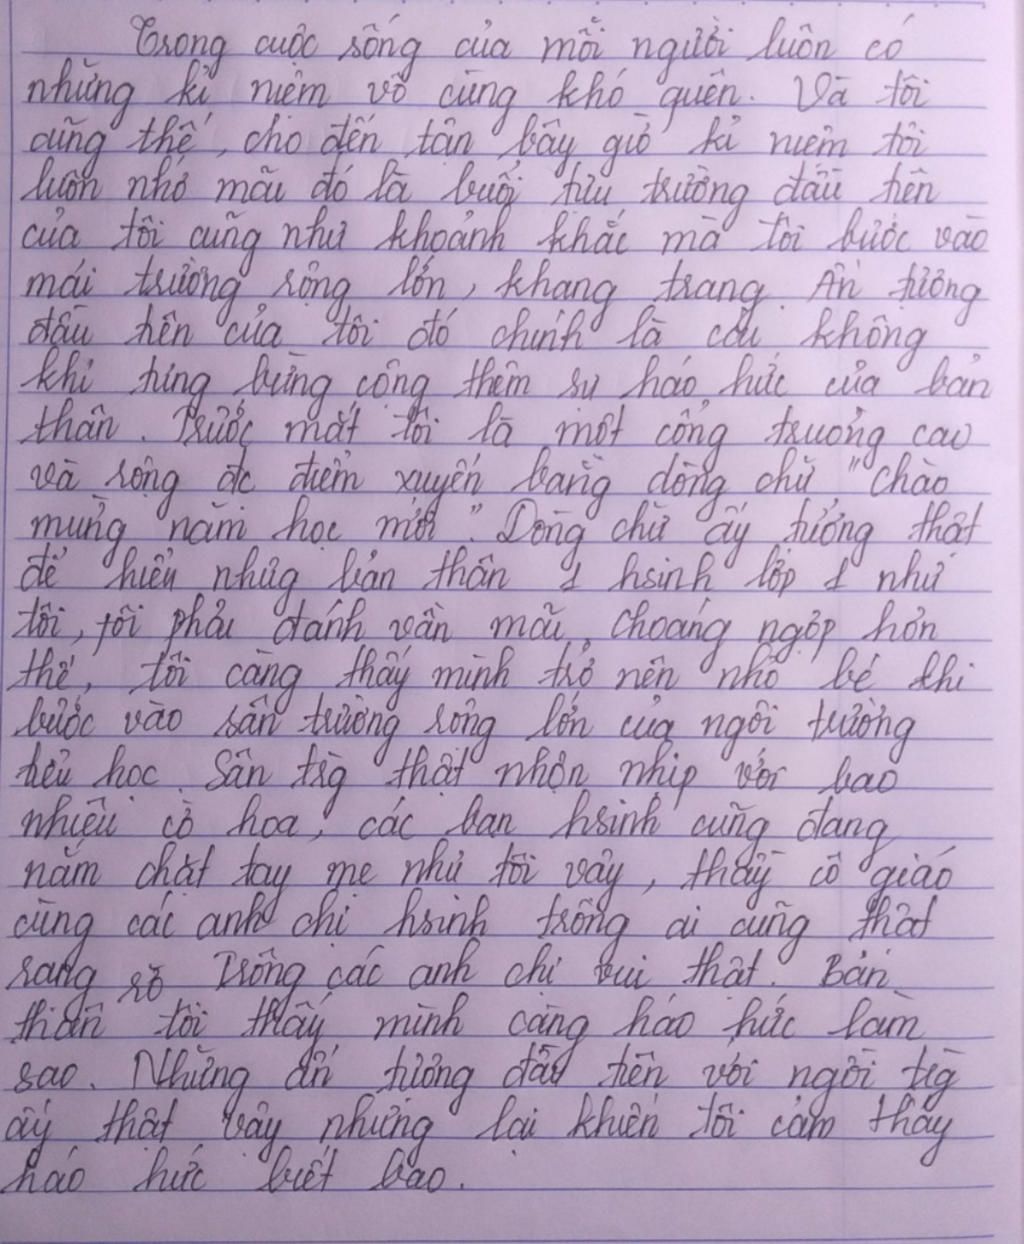 Trong cuộc sống của mỗi người luôn có
những kỉ niệm vô cùng khó quên. Và tôi
cũng thế, cho đến tận bây giờ kỉ niệm tôi
luôn nhớ mãi đó là buổi tựu trường đầu tiên
của tôi cũng như khoảnh khắc mà tôi bước vào
mái trường rộng lớn, khang trang. Ấn tượng
đầu tiên của tôi đó chính là cái không
khí tưng bừng cộng thêm sự háo hức của bản
thân. Trước mắt tôi là một cổng trường cao
và rộng đc điểm xuyến bằng dòng chữ "chào
mừng năm học mới". Dòng chữ ấy tưởng thật
dễ hiểu nhưg bản thân 1 hsinh lớp 1 như
tôi, tôi phải đánh vần mãi. Choáng ngợp hơn
thế, tôi càng thấy mình trở nên nhỏ bé khi
bước vào sân trường rộng lớn của ngôi trường
tiểu học. Sân trg thật nhộn nhịp với bao
nhiêu cờ hoa, các bạn hsinh cũng đang
nắm chặt tay mẹ như tôi vậy, thầy cô giáo
cùng các anh chị hsinh trông ai cũng thật
rạng rỡ. Trông các anh chị vui thật. Bản
thân tôi thấy mình càng háo hức làm
sao. Những ấn tượng đầu tiên với ngôi trg
ấy thật vậy nhưng lại khiến tôi cảm thấy
háo hức biết bao.